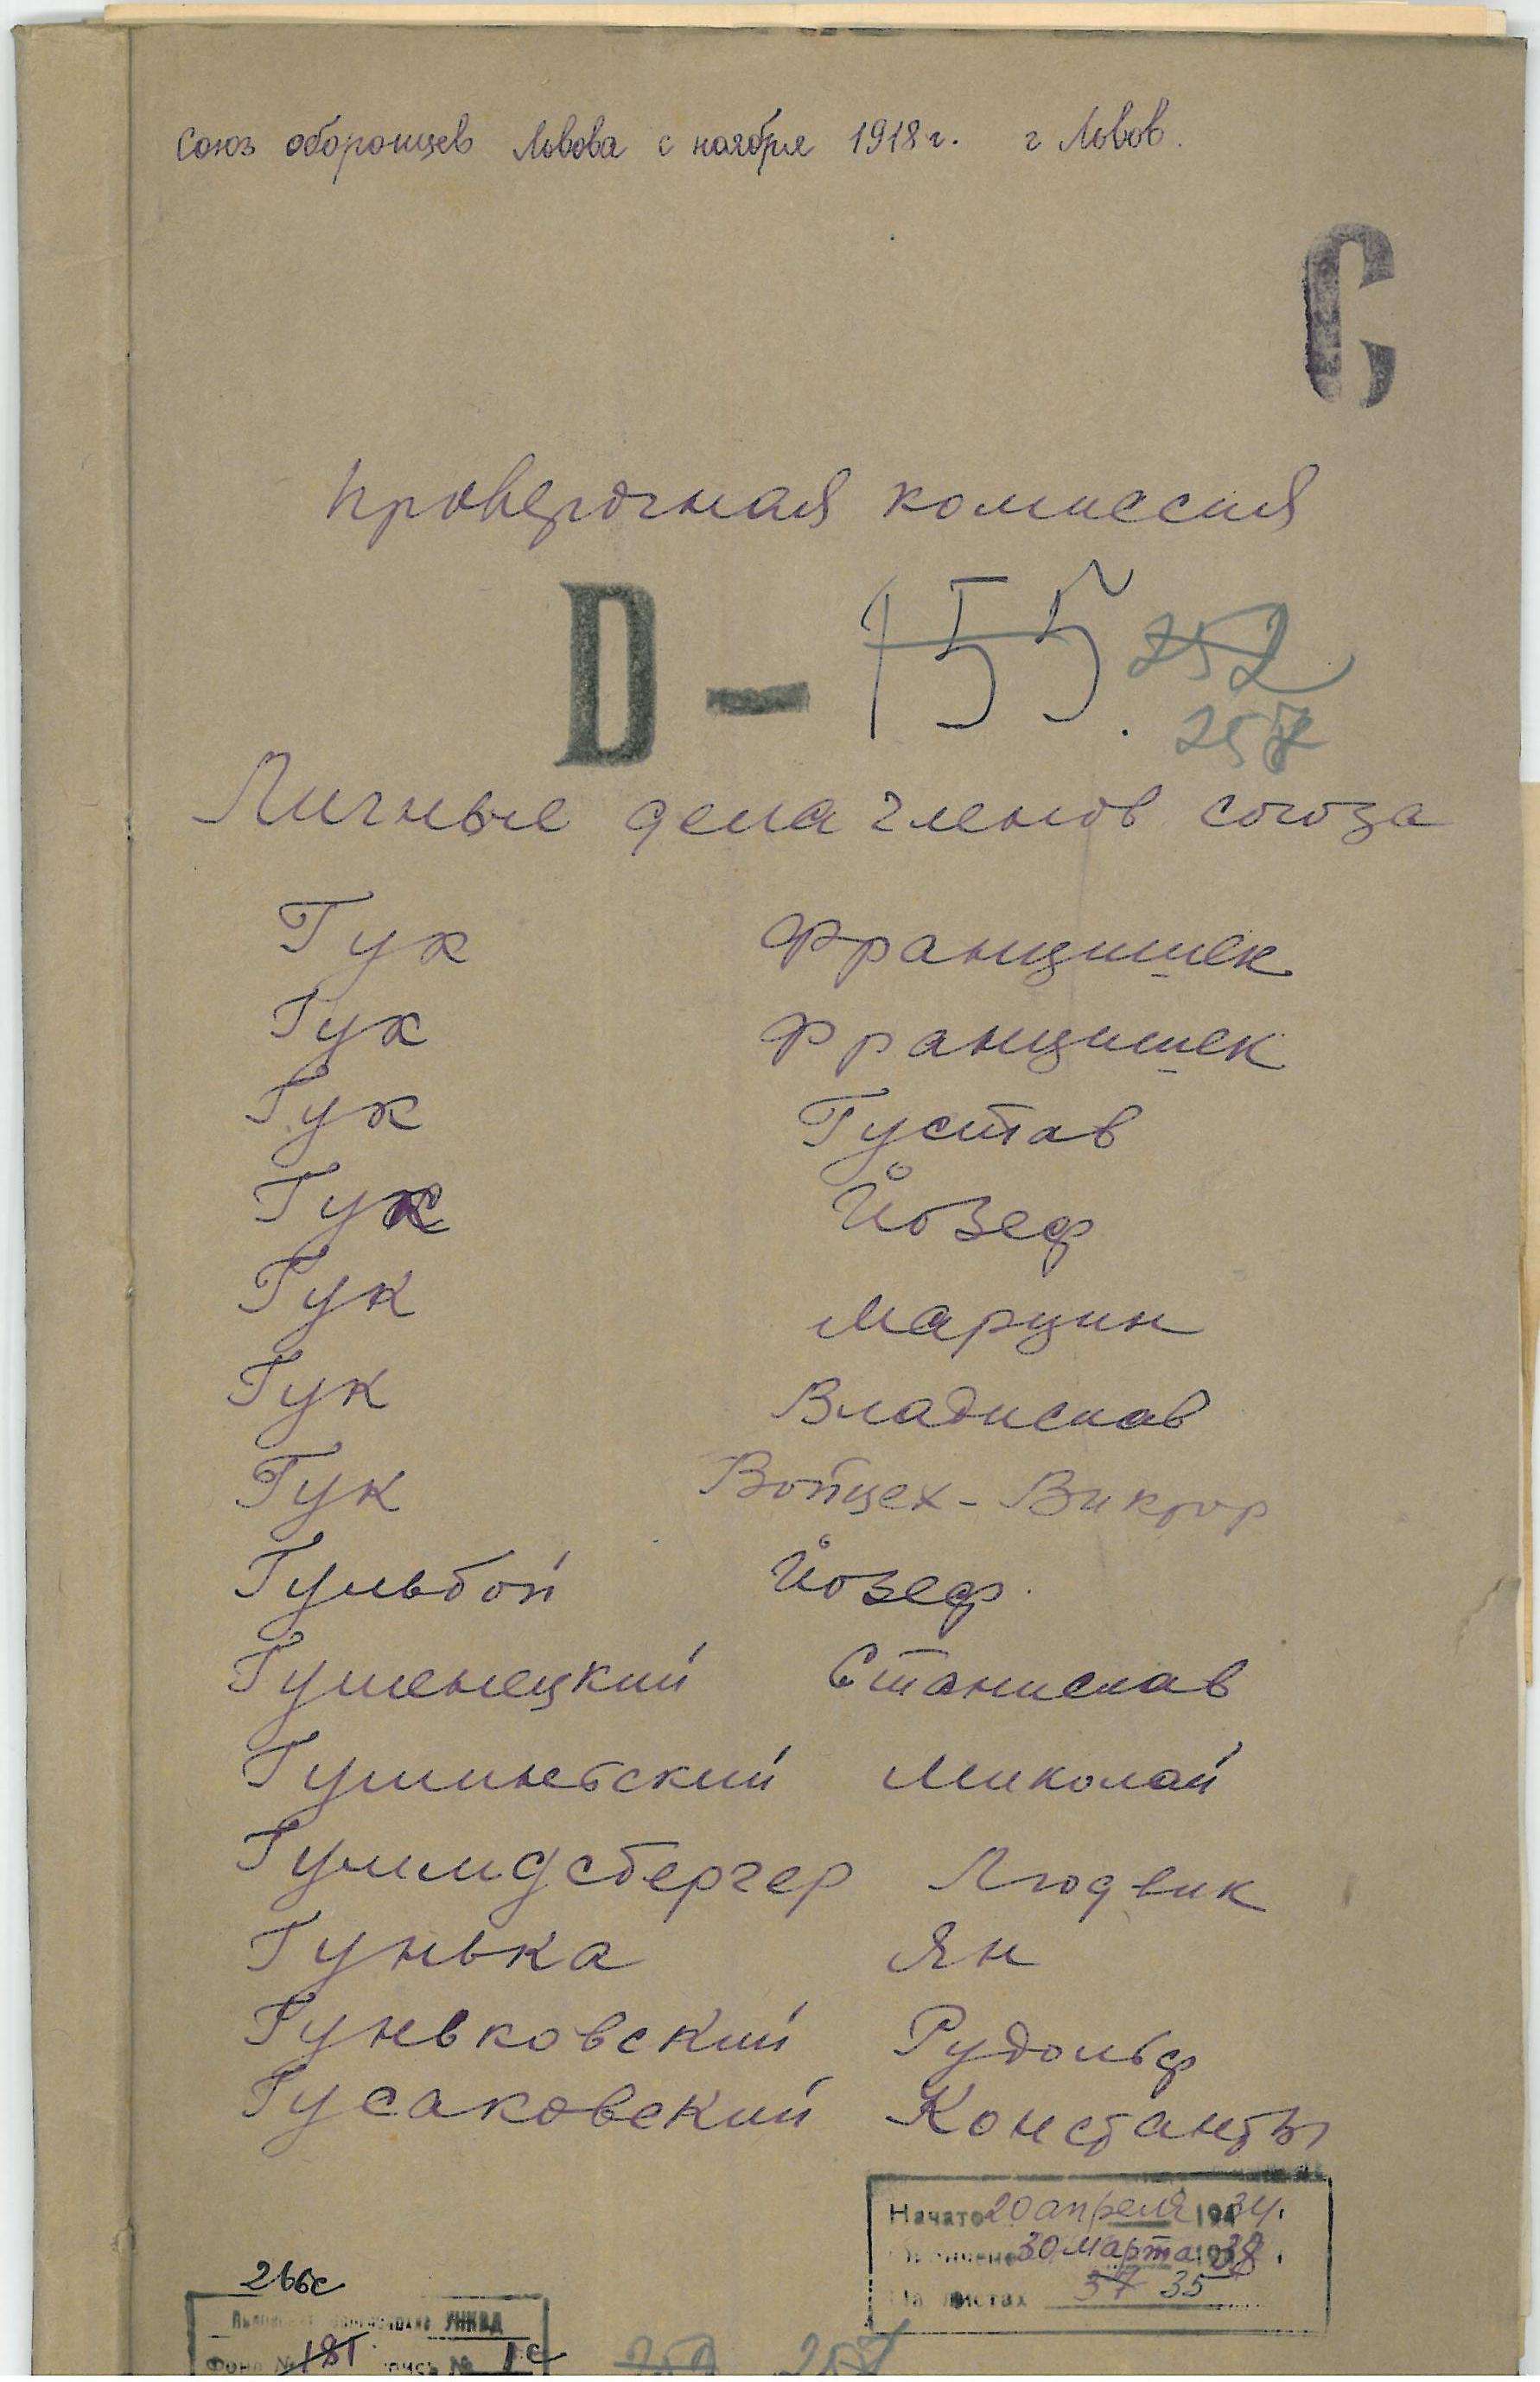 Союз оборонцев Львова с ноября 1918 г. г Львов.
С
Проверочная комиссия
D — 155. 252
257
Личные дела членов союза
Гук Францишек
Гук Францишек
Гук Густав
Гук Йозеф
Гук Марцин
Гук Владислав
Гук Войцех-Виктор
Гульбой Йозеф
Гуменецкий Станислав
Гуминьский Миколай
Гуммдсбергер Людвик
Гунька Ян
Гуньковский Рудольф
Гусаковский Константы
Начато 20 апреля 1934.
Окончено 30 марта 1938.
На листах 37 35
266с
УНКВД
Фонд № 181 опись № 1с
252 257